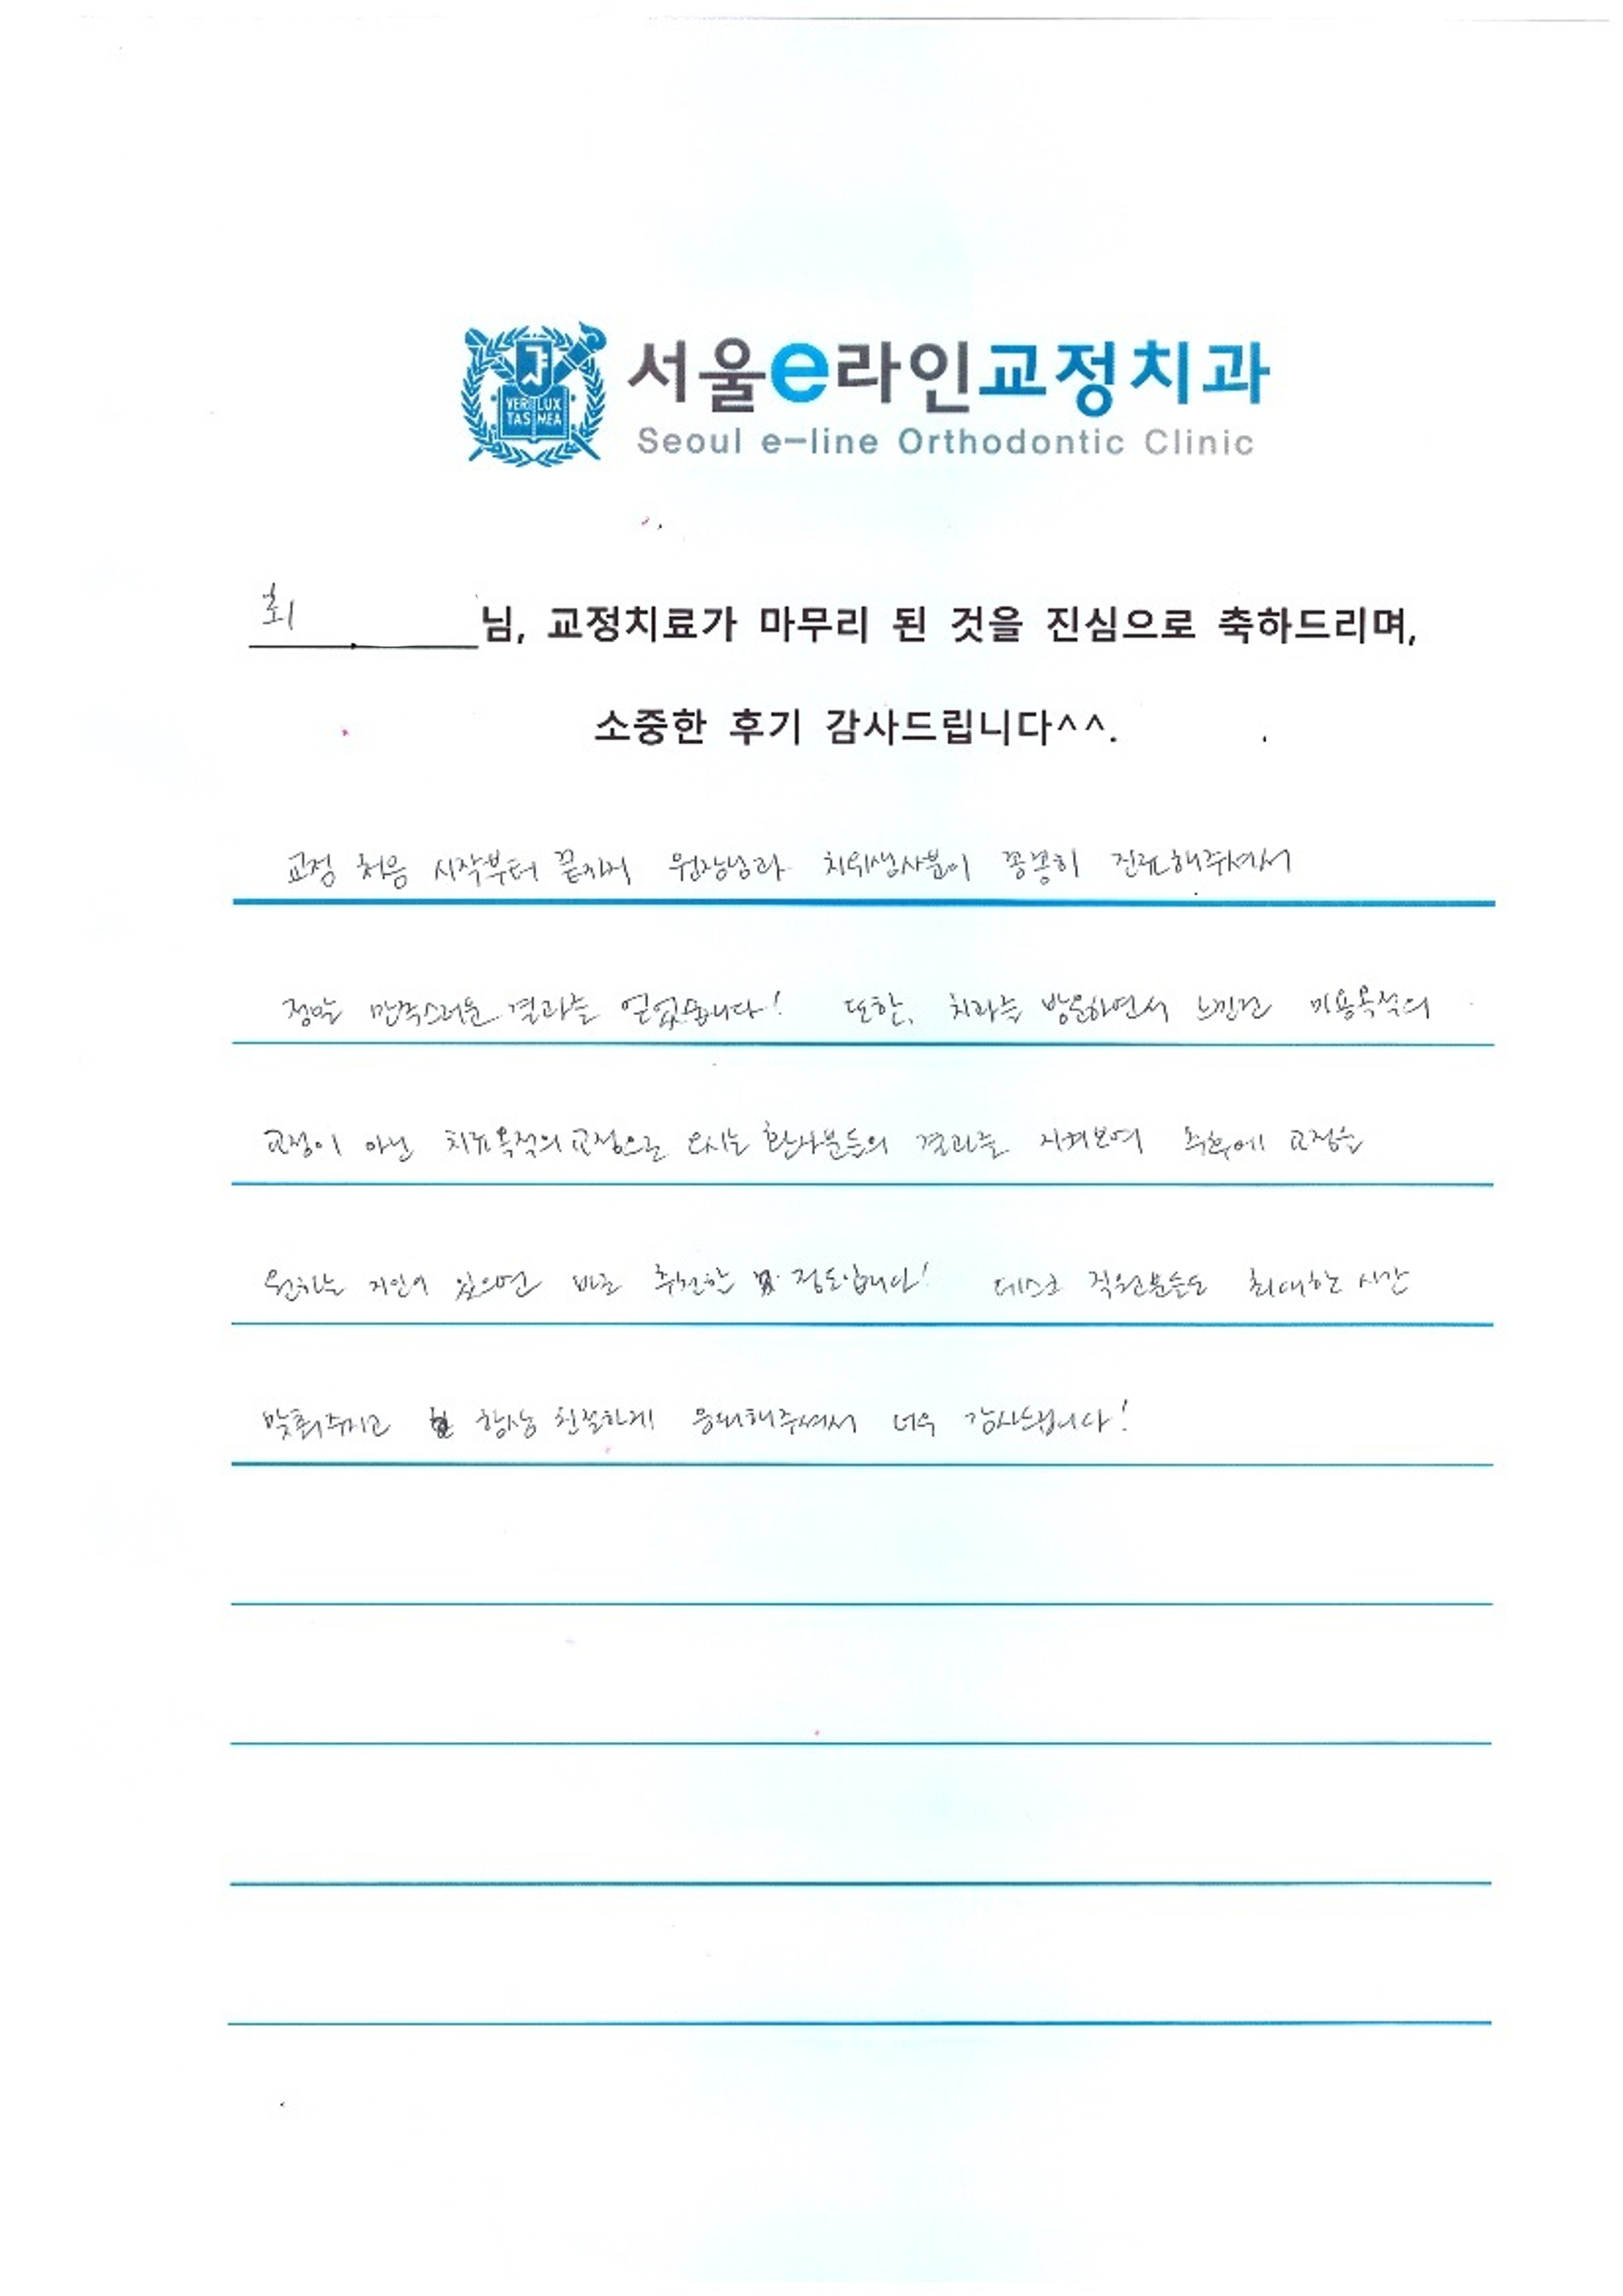 VERI LUX
TAS MEA
서울e라인교정치과
Seoul e-line Orthodontic Clinic
최 님, 교정치료가 마무리 된 것을 진심으로 축하드리며,
소중한 후기 감사드립니다^^.
교정 처음 시작부터 끝까지 원장님과 치위생사분이 꼼꼼히 진료해주셔서
정말 만족스러운 결과를 얻었습니다! 또한, 치과를 방문하면서 느낀건 미용목적의
교정이 아닌 치료목적의 교정으로 오시는 환자분들의 결과를 지켜보며 추후에 교정을
원하는 지인이 있으면 바로 추천할 정도입니다! 데스크 직원분들도 최대한 시간
맞춰주시고 항상 친절하게 응대해주셔서 너무 감사드립니다!